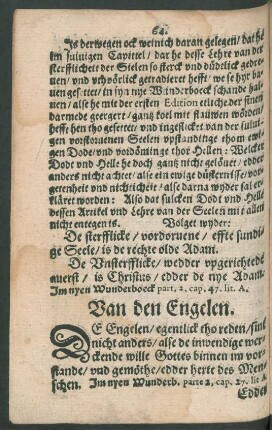 64.
Is derwegen ock weinich daran gelegen / dat he
im sulvigen Capittel / dar he desse Lehre van der
sterfflicheit der Seelen so sterck und düdtlick gedre-
ven / und uthvörlick getradieret hefft / we se hyr ba-
ven gesettet / in syn nye Wunderboeck schande hal-
ven / alse he mit der ersten Edition etliche der sinen
darmede geergert / gantz
hefft / hen tho gesettet / und ingeflicket van der sulvi-
gen vorstorvenen Seelen upstandinge thom ewi-
gen Dode / und vordöminge thor Hellen: Welcken
Dodt und Helle he doch gantz nicht gelövet / edder
anders nicht achtet / alse ein ewige düsternisse / vor-
getenheit und nichticheit / alse darna wyder sal er-
kläret worden: Also dat sulcken Dodt und Helle
dessen Artikel und Lehre van der Seelen mit allen
nicht entegen is. Volget wyder:
De sterfflicke / vordorvene / effte sundi-
ge Seele / is de rechte olde Adam.
De Unsterfflicke / wedder upgerichtede
averst / is Christus / edder de nye Adam.
Im nyen Wunderboeck part. 2. cap. 47. lit. A.
Van den Engelen.
DE Engelen / egentlick tho reden / sint
nicht anders / alse de inwendige wer-
ckende wille Gottes binnen im vor-
stande / und gemöthe / edder herte des Men-
schen. Im nyen Wunderb. parte 2. cap. 27. lit. A
Edder